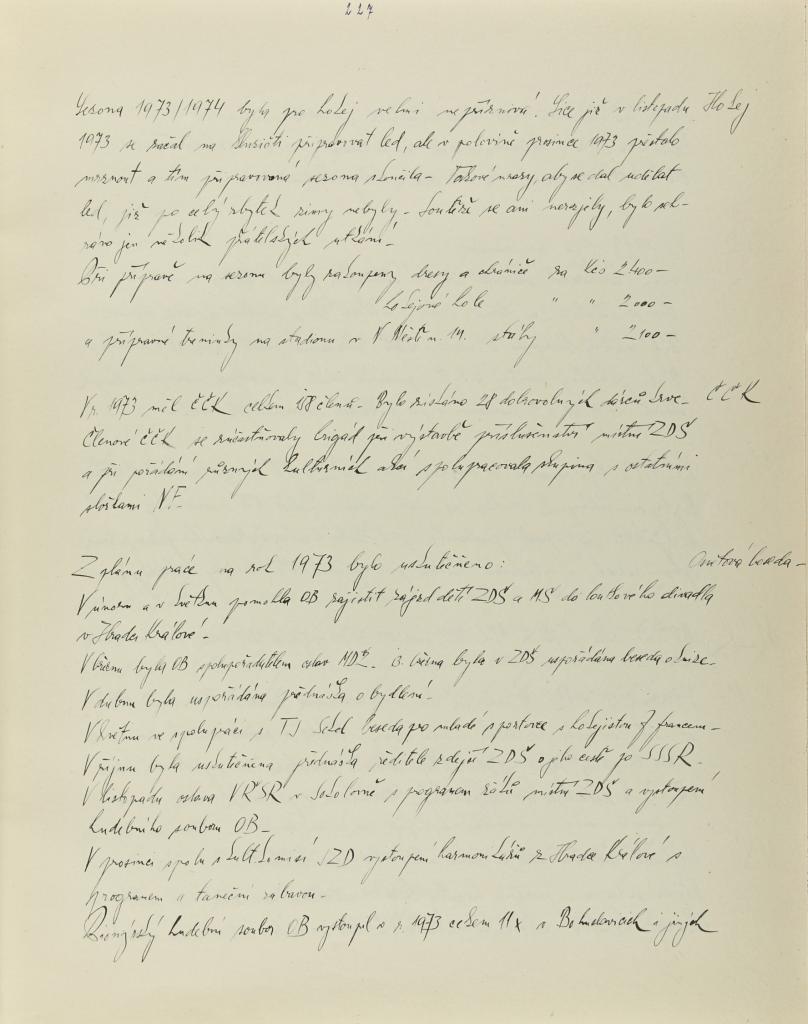 227
Sezona 1973/1974 byla pro hokej velmi nepříznivá. Sice již v listopadu Hokej
1973 se začal na kluzišti připravovat led, ale v polovině prosince 1973 přestalo
mrznout a tím připravovaná sezona skončila - Takové mrazy, aby se dal udělat
led, již po celý zbytek zimy nebyly - Soutěže se ani nerozjely, bylo seh-
ráno jen několik přátelských utkání -
Při přípravě na sezonu byly zakoupeny dresy a chrániče za Kčs 2400 -
hokejové hole " " 2000 -
a přípravné tréninky na stadionu v N. Městě n. M. stály " 2100 -
V r. 1973 měl ČČK celkem členů - Bylo získáno 28 dobrovolných dárců krve - ČČK
Členové ČČK se zúčastňovaly brigád při výstavbě příslušenství místní ZDŠ
a při pořádání různých kulturních akcí spolupracovala skupina s ostatními
složkami NF -
Z plánu práce na rok 1973 bylo uskutečněno: Osvětová beseda -
V únoru a v květnu pomohla OB zajistit zájezd dětí ZDŠ a MŠ do loutkového divadla
v Hradci Králové -
V březnu byla OB spolupořadatelem oslav MDŽ - března byla v ZDŠ uspořádána beseda o knize -
V dubnu byla uspořádána přednáška o bydlení -
V květnu ve spolupráci s TJ Sokol beseda pro mladé sportovce s hokejistou Francem -
V říjnu byla uskutečněna přednáška ředitele zdejší ZDŠ o jeho cestě po SSSR -
V listopadu oslava VŘSR v Sokolovně s pogramem žáků místní ZDŠ a vystoupení
hudebního souboru OB -
V prosinci spolu s kult. komisí JZD vystoupení harmonikářů z Hradce Králové s
programem a taneční zábavou -
Pionýrský hudební soubor OB vystoupil v r. 1973 celkem 11x v Bohuslavicích i jiných